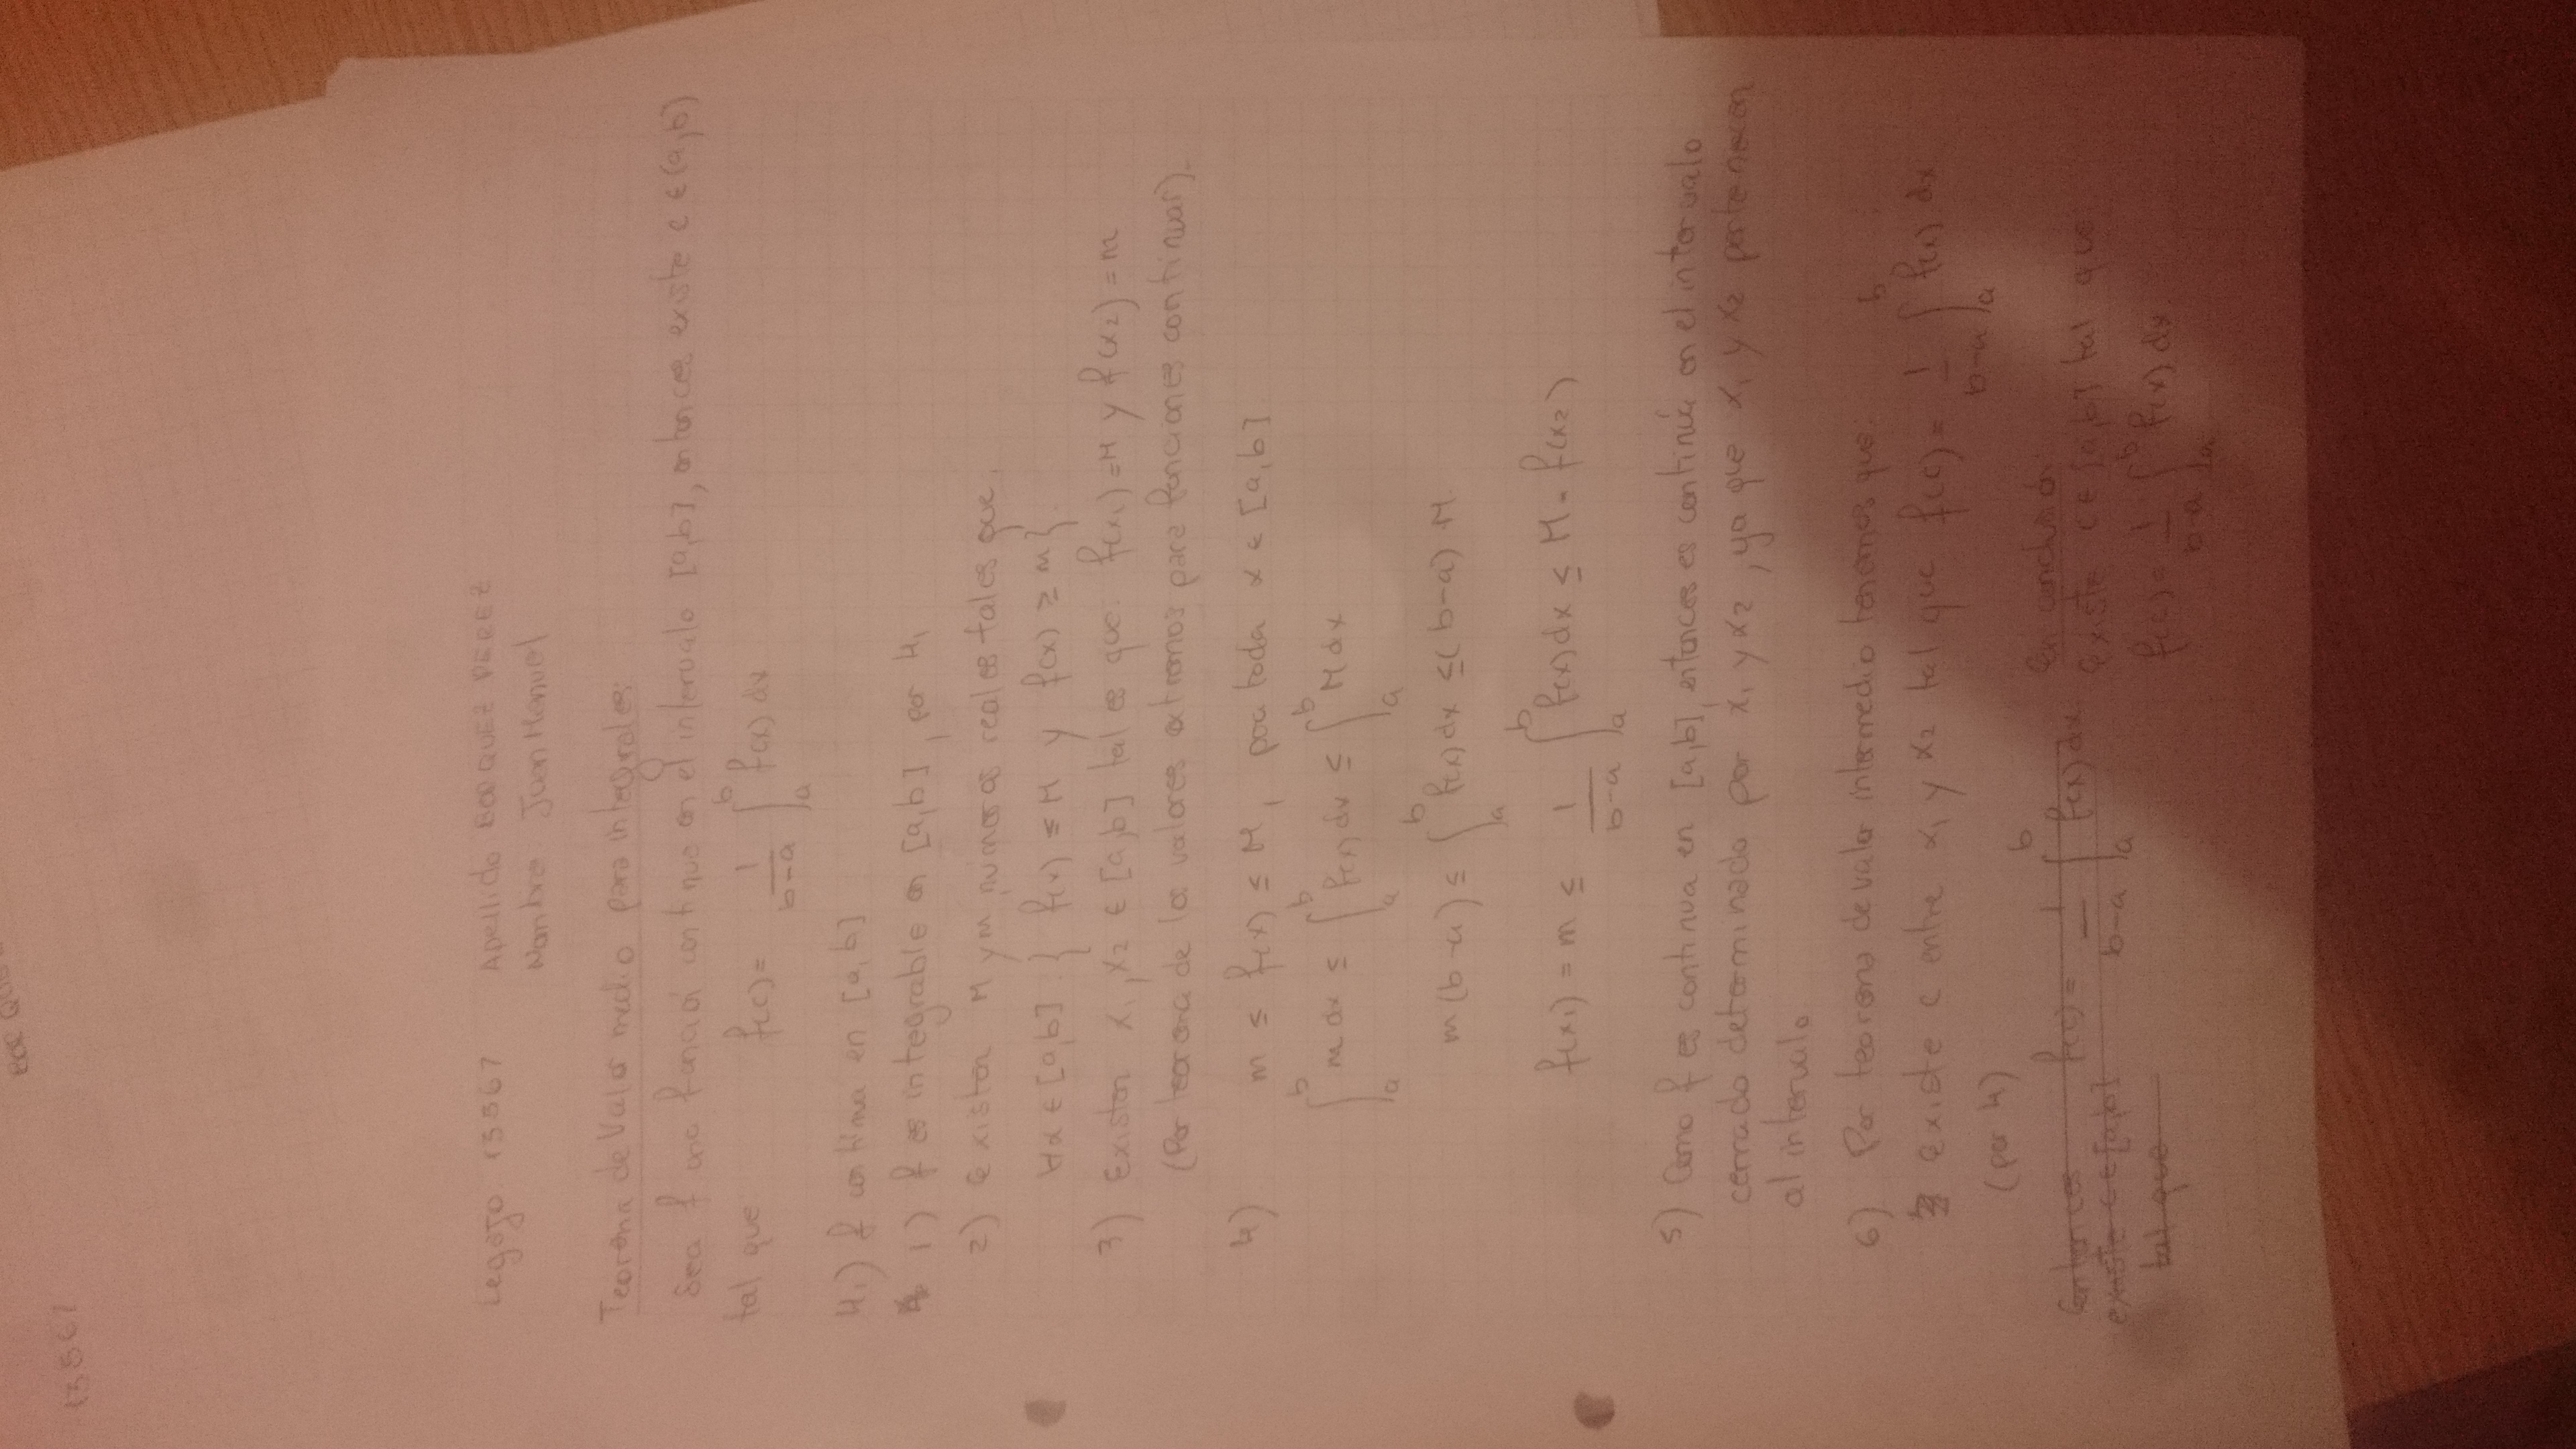 BOR QUE
13567
Legajo 13567 Apellido BORQUEZ PEREZ
Nombre: Juan Manuel
Teorema de Valor medio para integrales:
Sea f una función continua en el intervalo [a,b], entonces existe c ∈ (a,b)
tal que f(c) = 1/(b-a) ∫_a^b f(x) dx
H₁) f continua en [a,b]
1) f es integrable en [a,b], por H₁
2) Existen M y m números reales tales que:
∀x ∈ [a,b] : { f(x) ≤ M y f(x) ≥ m }.
3) Existen x₁, x₂ ∈ [a,b] tal es que: f(x₁) = M y f(x₂) = m
(Por teorema de los valores extremos para funciones continuas).
4) m ≤ f(x) ≤ M, para toda x ∈ [a,b]
∫_a^b m dx ≤ ∫_a^b f(x) dx ≤ ∫_a^b M dx
m(b-a) ≤ ∫_a^b f(x) dx ≤ (b-a) M.
f(x₁) = m ≤ 1/(b-a) ∫_a^b f(x) dx ≤ M = f(x₂)
5) Como f es continua en [a,b], entonces es continúa en el intervalo
cerrado determinado por x₁ y x₂, ya que x₁ y x₂ pertenecen
al intervalo.
6) Por teorema de valor intermedio tenemos que:
existe c entre x₁ y x₂ tal que f(c) = 1/(b-a) ∫_a^b f(x) dx
(por 4)
Entonces f(c) = 1/(b-a) ∫_a^b f(x) dx
existe c ∈ [a,b]
tal que
En conclusión:
existe c ∈ [a,b] tal que
f(c) = 1/(b-a) ∫_a^b f(x) dx.